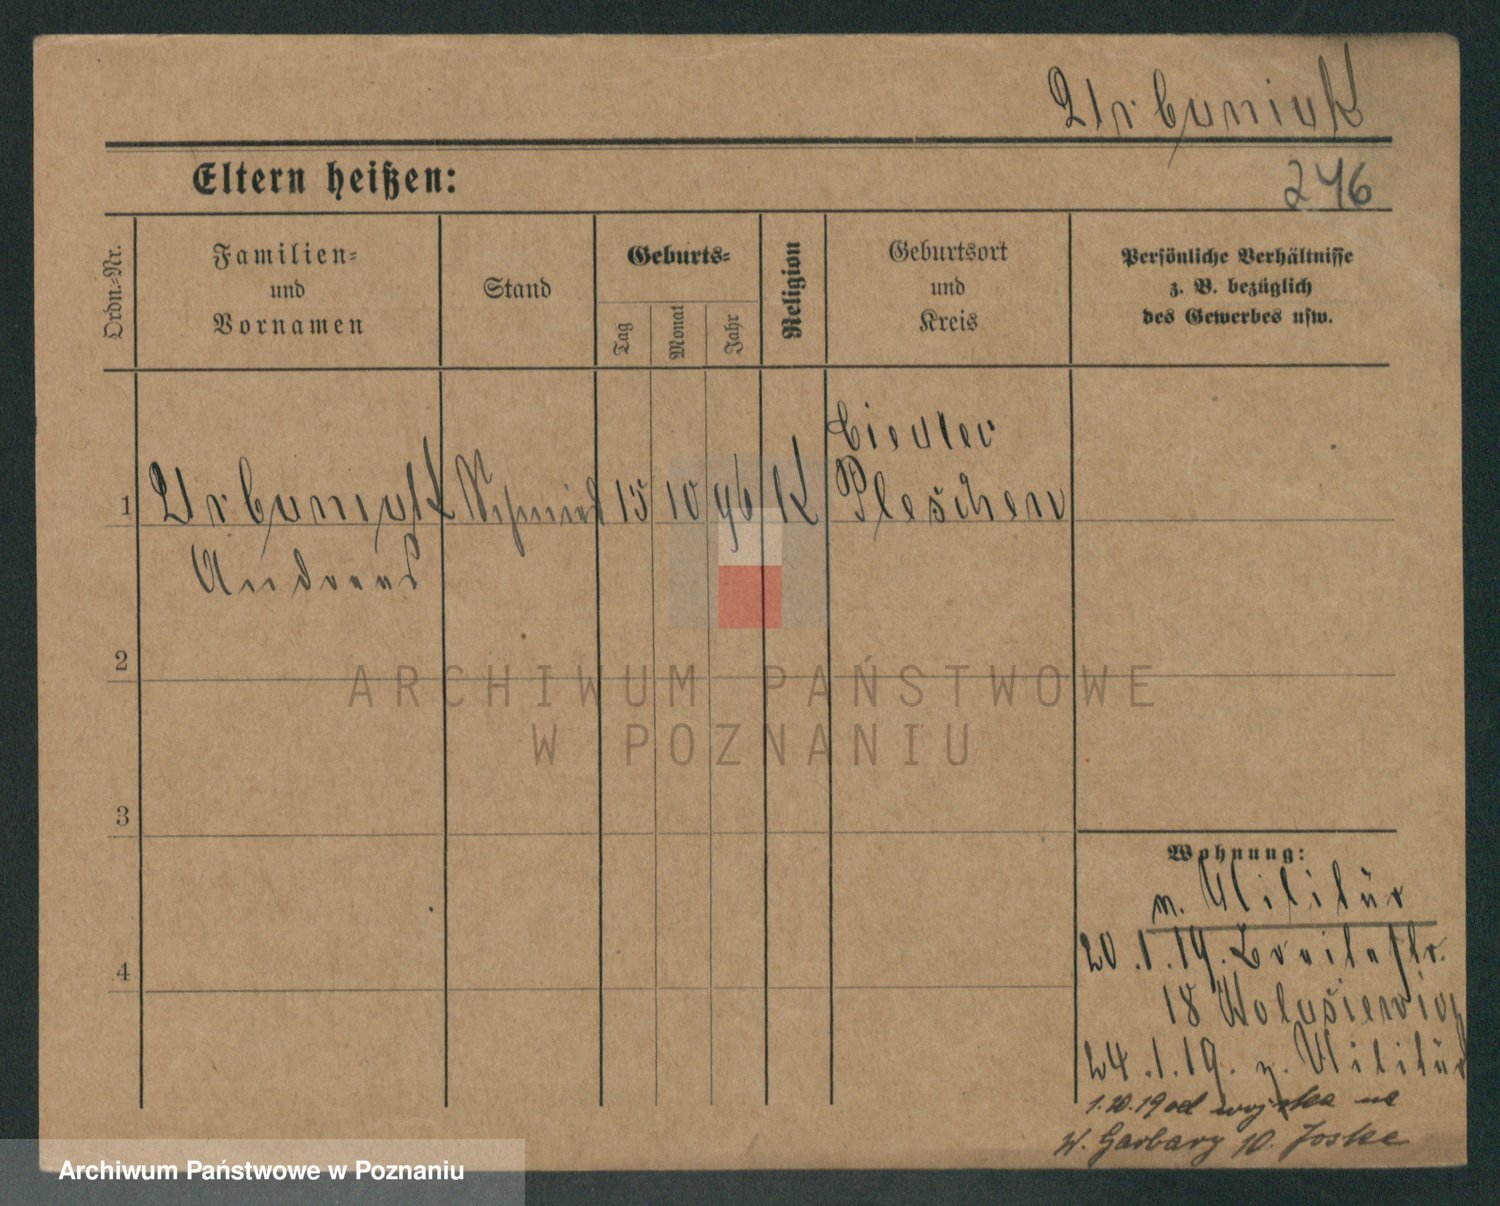 Urbaniak
Eltern heißen:
246
Ordn.-Nr.
Familien-
und
Vornamen
Stand
Geburts-
Tag
Monat
Jahr
Religion
Geburtsort
und
Kreis
Persönliche Verhältnisse
z. B. bezüglich
des Gewerbes usw.
1 Urbaniak Schmied 15 10 96 K
Pleschen
Andreas
2
3
4
Wohnung:
n. Militär
20.1.19. Breitestr.
18
24.1.19. z. Militär
1.10.19 od wojska na
W. Garbary 10. Joske
ARCHIWUM PAŃSTWOWE
W POZNANIU
Archiwum Państwowe w Poznaniu